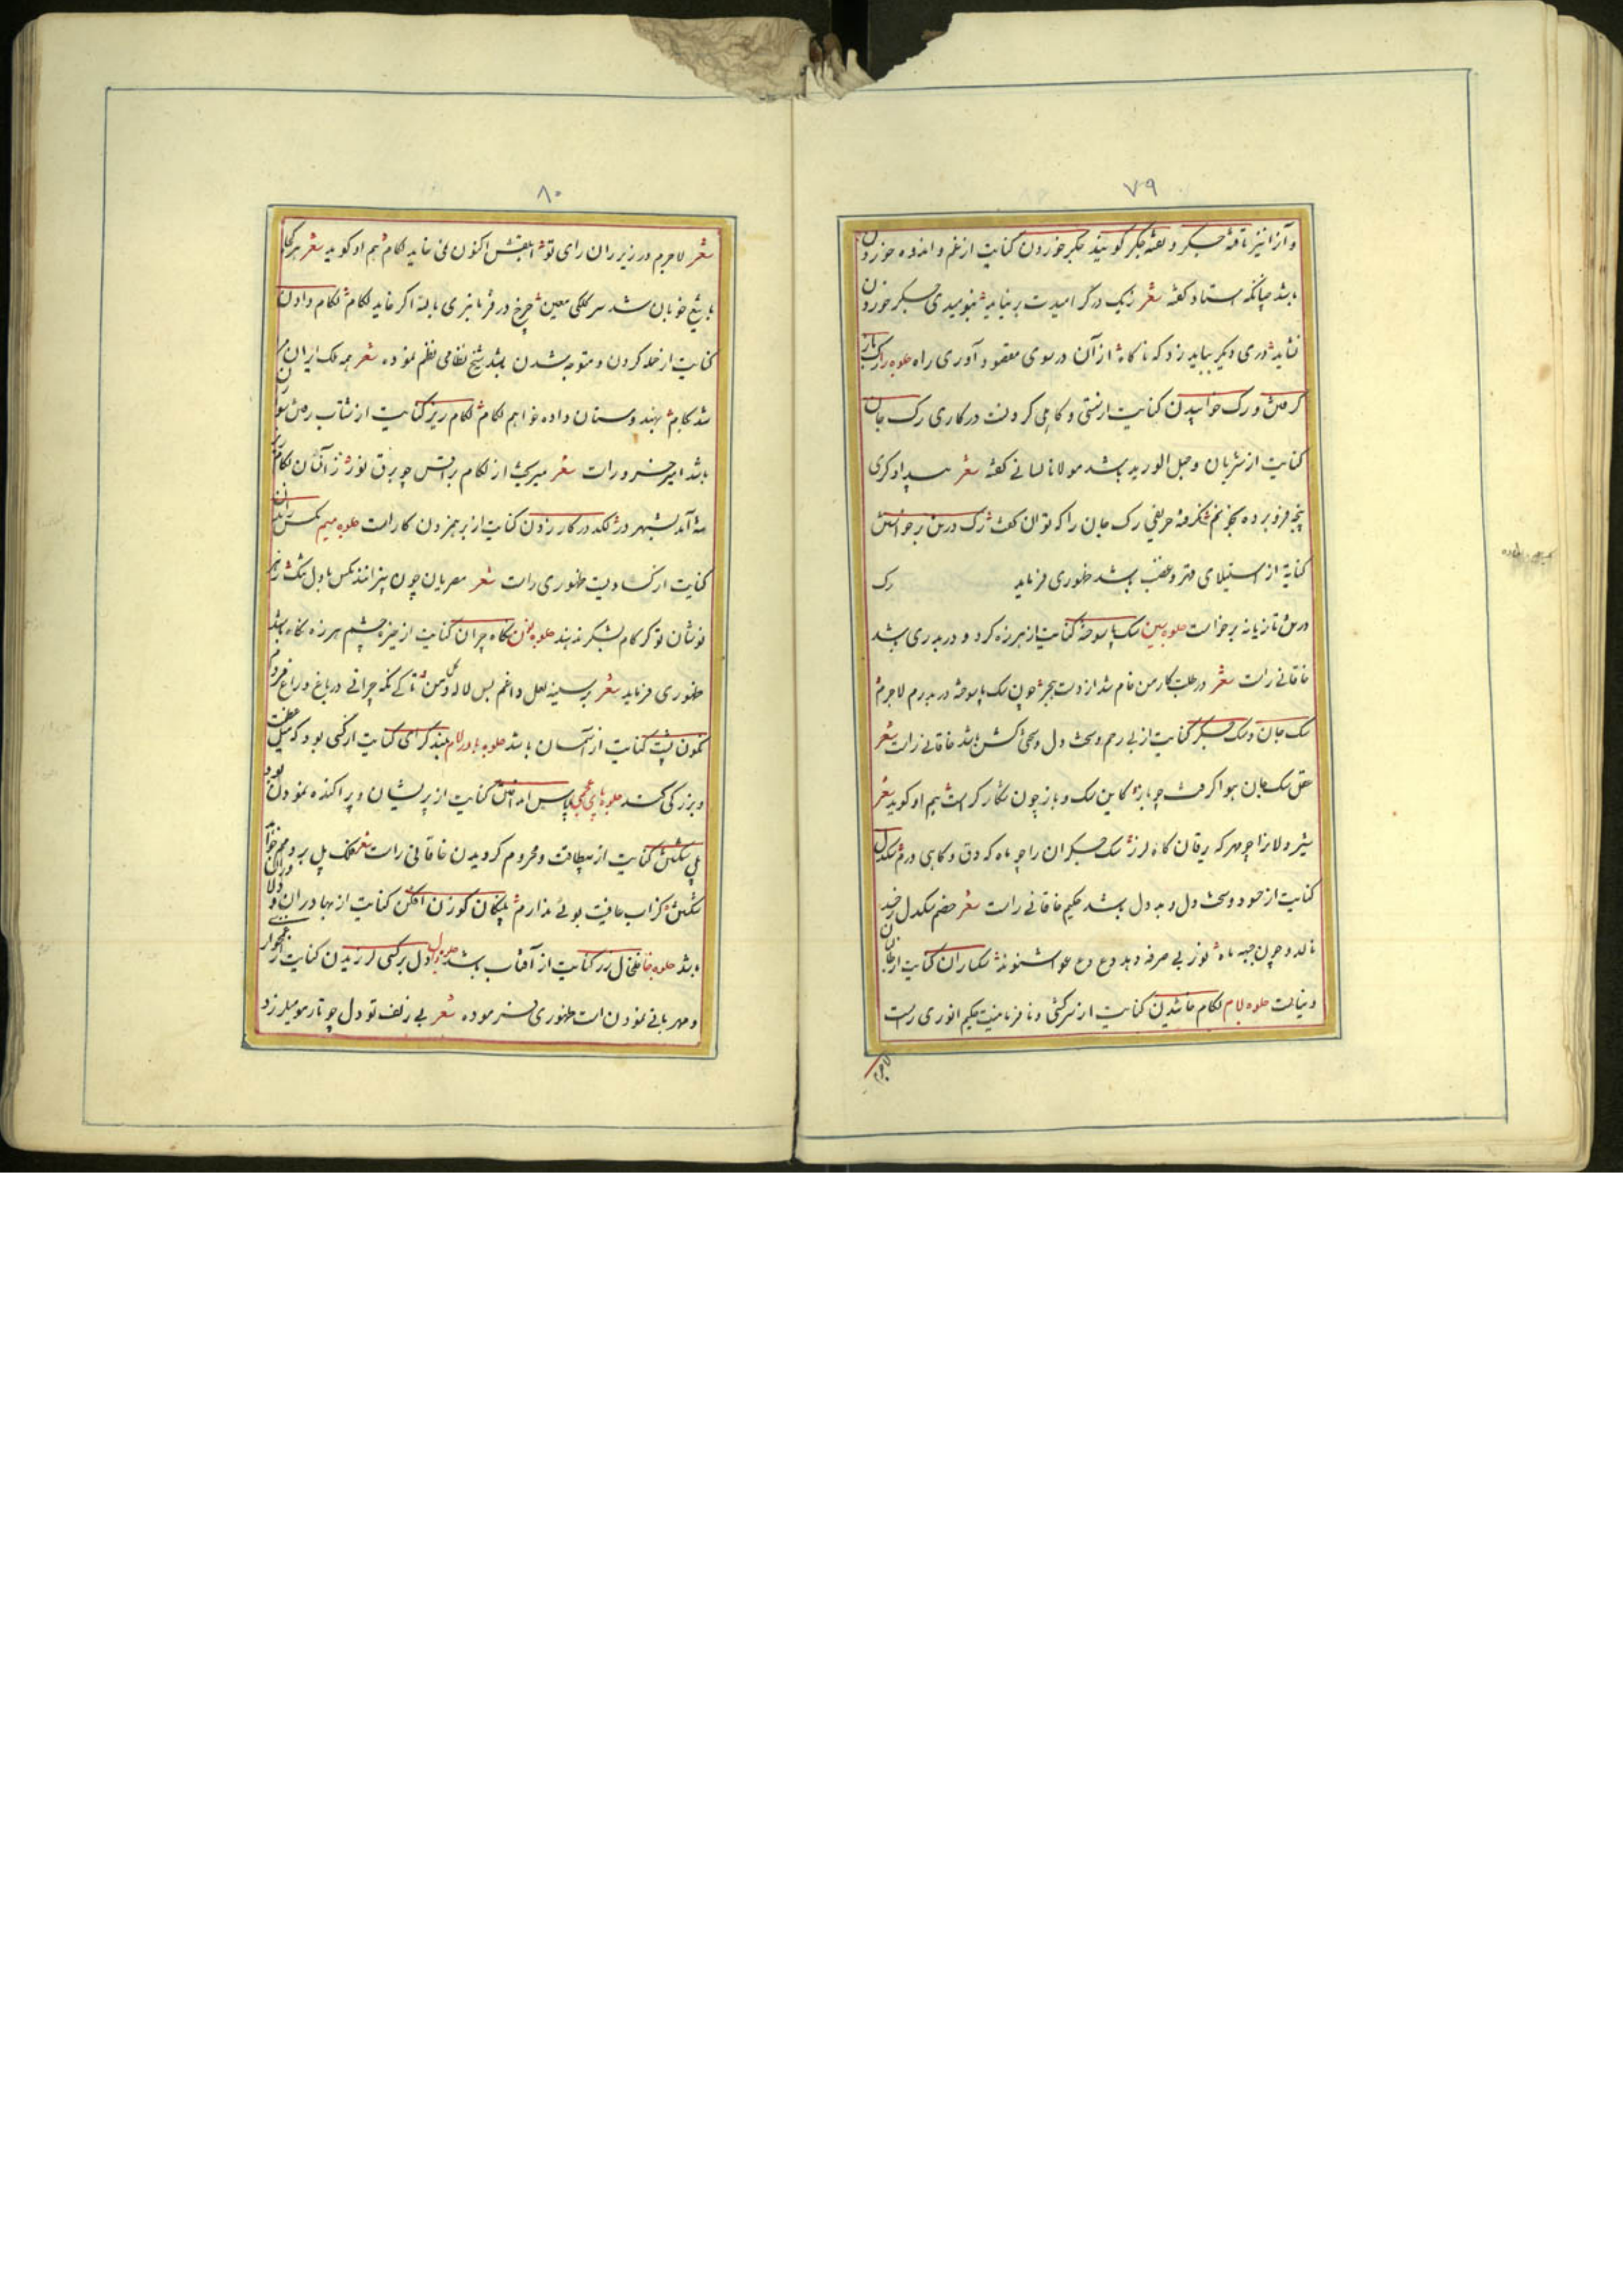 ۷۹
و آنرا نیز تافتهٔ جگر و تفتهٔ جگر گویند جگر خوردن کنایت از غم و اندوه خوردن
باشد چنانکه استاد گفته شعر ز یک در گر امیدت بر نیاید نبومیدی جگر خوردن
نشاید دری دیگر بباید زد که ناگاه از آن در سوی مقصود آوری راه جلوه را رگ
گردن و رگ خوابیدن کنایت از سستی و کاهلی کردنت در کاری رگ جان
کنایت از شریان و حبل الورید باشد مولانا لسانی گفته شعر
پنجه فرو برده بخونم حریفی رگ جان را که توان گفت رگ درمن برخواستن
کنایة از استیلای قهر و غضب باشد ظهوری فرماید رگ
درمن تازیانه برخواست جلوه سین سگ پا سوخته کنایت از هرزه گرد و دربدری باشد
خاقانی راست شعر در طلبت کار من خام شد از دست هجر چون سگ پا سوخته دربدرم لاجرم
سگ جان و سگ جگر کنایت از بی رحم و سخت دل و سختی کش باشد خاقانی راست شعر
عقل سگ جان هوا گرفت چو باز کاین سگ و باز چون شکار گر است هم او گوید شعر
شیردلانرا چو مهر گه یرقان گاه لرز سگ جگران را چو ماه گه دق و گاهی ورم سگدل
کنایت از حسود و سخت دل و بد دل باشد حکیم خاقانی راست شعر خصم سگدل ز حسد
نالد و چون جبهه ماه نور بی صرفه دهد وع وع عوا شنوند سگساران کنایت از
دنیا است جلوه لام لگام خائیدن کنایت از سرکشی و نافرمانیست حکیم انوری راست
۸۰
شعر لاجرم در زیر ران رای تو ابلقش اکنون نمی خاید لگام هم او گوید شعر هر کجا
با تیغ خوبان شد سر کلکی معین چرخ در فرمانبری با لله اگر خاید لگام لگام دادن
کنایت از حمله کردن و متوجه شدن باشد شیخ نظامی نظم نموده شعر همه ملک ایران
شد بکام بهندوستان داده خواهم لگام لگام ریز کنایت از شتاب رفتن
باشد امیر خسرو راست شعر میریخت از لگام براقش چو برق نور ز آنسان لگام
آمد بشهر در لگد در کار زدن کنایت از برهم زدن کار است جلوه میم مگس راندن
کنایت از کساد ظهوری راست شعر مصریان چون نپرانند مگس با دل تنگ
نوشان تو گر کام بشکر ندهند جلوه نون نگاه چران کنایت از خیره چشم هرزه نگاه باشد
ظهوری فرماید شعر بر سینه لعل داغم بس لاله گل و من تا کی نگه چرانی در باغ و راغ مردم
نگون پشت کنایت از آسمان باشد جلوه با در لام بلند گرای کنایت از کسی بود که میل
و بزرگی کند جلوه بای عجمی پلاس انداختن کنایت از پریشان و پراکنده نمودن بود
پل شکستن کنایت از بیطاقت و محروم گردیدن خاقانی راست شعر فلک پل بر
شکستن کز آب عافیت بوئی ندارم پلنگان گوزن افکن کنایت از بهادران
باشد جلوه خا خلخال زر کنایت از آفتاب باشد دل بر کسی لرزیدن کنایت از
و مهربانی نمودن است ظهوری فرموده شعر بی زلف تو دل چو تار مو میلرزد